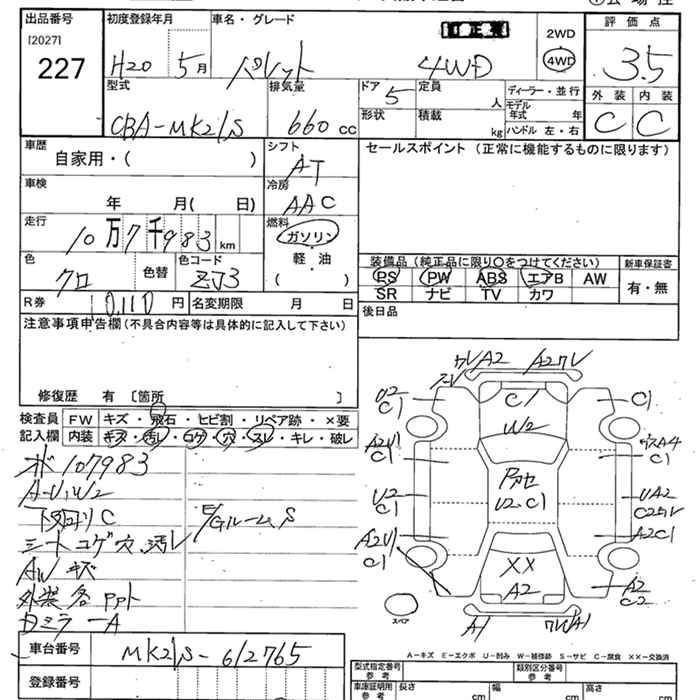 出品番号
[2027]
227
初度登録年月
H20 5月
車名・グレード
パレット 4WD
2WD
4WD
評価点
3.5
外装 内装
C C
型式
CBA-MK21S
排気量
660 cc
ドア
5
定員
人
形状
積載
kg
ディーラー・並行
モデル年式 年
ハンドル 左・右
車歴
自家用・( )
シフト
AT
セールスポイント (正常に機能するものに限ります)
車検
年 月( 日)
冷房
AAC
走行
10万7千983 km
燃料
ガソリン
軽・油
( )
色
クロ
色替
色コード
ZJ3
装備品 (純正品に限り〇をつけてください)
PS PW ABS エアB AW
SR ナビ TV カワ
新車保証書
有・無
R券
10,110 円
名変期限 月 日
後日品
注意事項申告欄 (不具合内容等は具体的に記入して下さい)
修復歴 有 [箇所 ]
検査員記入欄
FW キズ・飛石・ヒビ割・リペア跡・×要
内装 キズ・汚レ・コゲ・穴・スレ・キレ・破レ
107983
A-U,W2
下回り C
E/Gルーム S
シート コゲ 穴 汚レ
AW キズ
外装 各
A
車台番号
MK21S-612765
登録番号
A2 A2
C1
W2
U2 C1
C1
A2U1 C1
A4 C1
U2 C1
U2・C1
UA2
A2U1 C1
A2C1
XX
A2
A2 C2
A1
スペア
A-キズ E-エクボ U-凹み W-補修跡 S-サビ C-腐食 ××-交換済
型式指定番号 参考
類別区分番号 参考
車庫証明用 参考
長さ cm
幅 cm
高さ cm